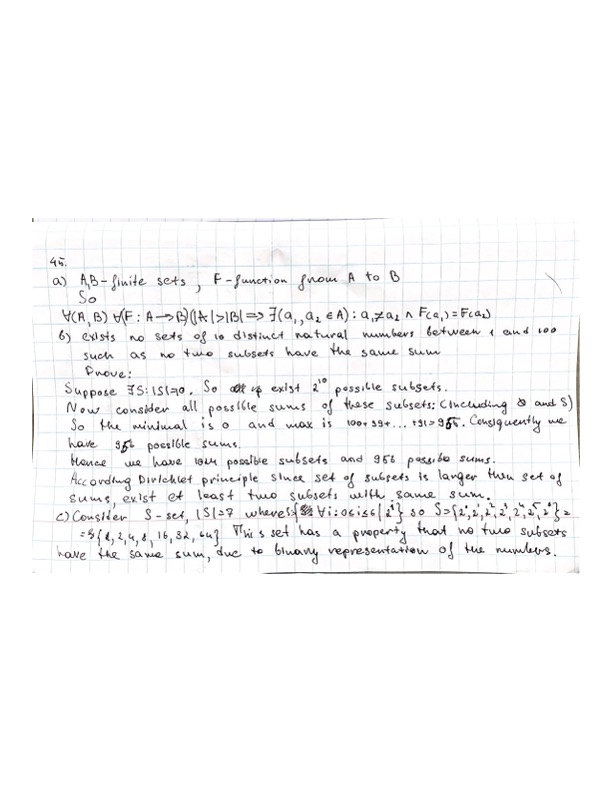 45.
a) A,B - finite sets, F - function from A to B
So
∀(A, B) ∀(F : A → B)(|A| > |B| => ∃(a₁, a₂ ∈ A) : a₁ ≠ a₂ ∧ F(a₁) = F(a₂)
b) exists no sets of 10 distinct natural numbers between 1 and 100
such as no two subsets have the same sum
Prove:
Suppose ∃S: |S|=10. So exist 2¹⁰ possible subsets.
Now consider all possible sums of these subsets: (including ∅ and S)
So the minimal is 0 and max is 100+99+...+91=955. Consiquently we
have 956 possible sums.
Hence we have 1024 possible subsets and 956 possible sums.
According Dirichlet principle since set of subsets is larger then set of
sums, exist et least two subsets with same sum.
c) Consider S - set, |S|=7 where S={∀i: 0≤i≤6 | 2ⁱ} so S={2⁰, 2¹, 2², 2³, 2⁴, 2⁵, 2⁶} =
= {1, 2, 4, 8, 16, 32, 64} This set has a property that no two subsets
have the same sum, due to binary representation of the numbers.